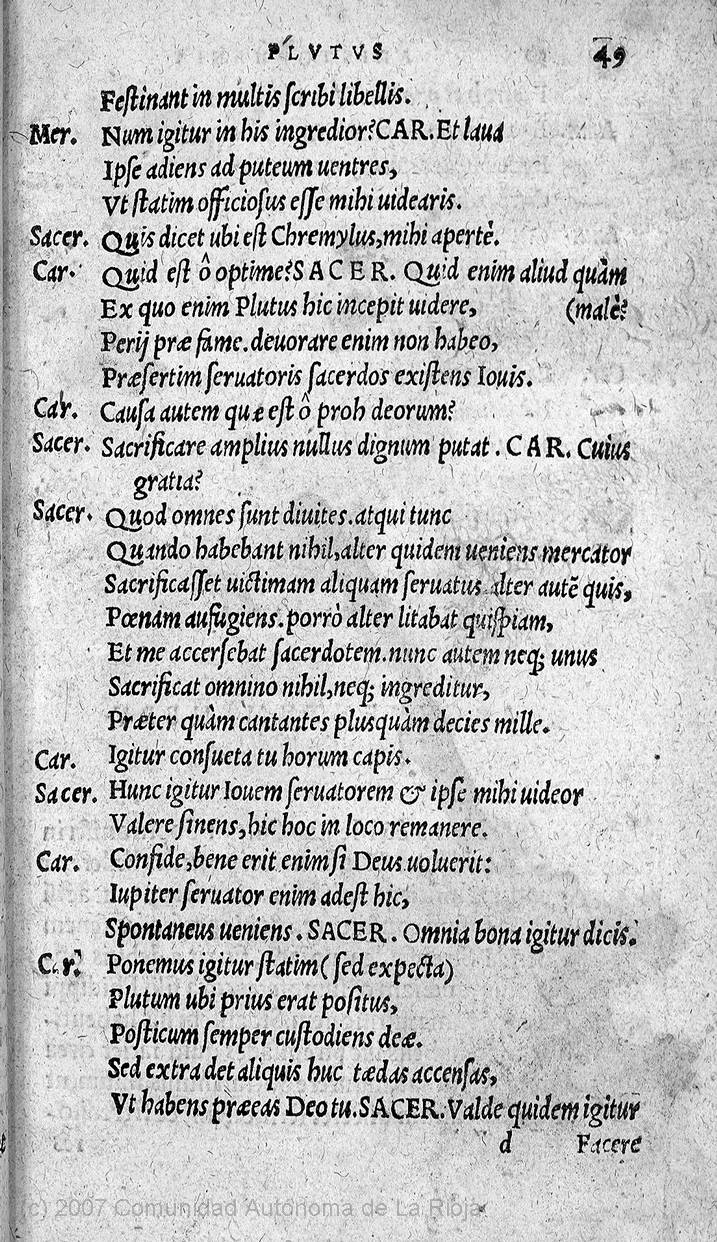 PLVTVS 49
Festinant in multis scribi libellis.
Mer. Num igitur in his ingredior? CAR. Et laua
Ipse adiens ad puteum uentres,
Vt statim officiosus esse mihi uidearis.
Sacer. Quis dicet ubi est Chremylus, mihi apertè.
Car. Quid est ô optime? SACER. Quid enim aliud quàm
Ex quo enim Plutus hic incepit uidere, (malè?
Perij præ fame. deuorare enim non habeo,
Præsertim seruatoris sacerdos existens Iouis.
Car. Causa autem quæ est ô proh deorum?
Sacer. Sacrificare amplius nullus dignum putat. CAR. Cuius
gratia?
Sacer. Quod omnes sunt diuites. atqui tunc
Quando habebant nihil, alter quidem ueniens mercator
Sacrificasset uictimam aliquam seruatus alter autē quis,
Pœnam aufugiens. porrò alter litabat quispiam,
Et me accersebat sacerdotem. nunc autem neq; unus
Sacrificat omnino nihil, neq; ingreditur,
Præter quàm cantantes plusquàm decies mille.
Car. Igitur consueta tu horum capis.
Sacer. Hunc igitur Iouem seruatorem & ipse mihi uideor
Valere sinens, hic hoc in loco remanere.
Car. Confide, bene erit enim si Deus uoluerit:
Iupiter seruator enim adest hic,
Spontaneus ueniens. SACER. Omnia bona igitur dicis.
Car. Ponemus igitur statim (sed expecta)
Plutum ubi prius erat positus,
Posticum semper custodiens deæ.
Sed extra det aliquis huc tædas accensas,
Vt habens præeas Deo tu. SACER. Valde quidem igitur
d Facere
(c) 2007 Comunidad Autónoma de La Rioja